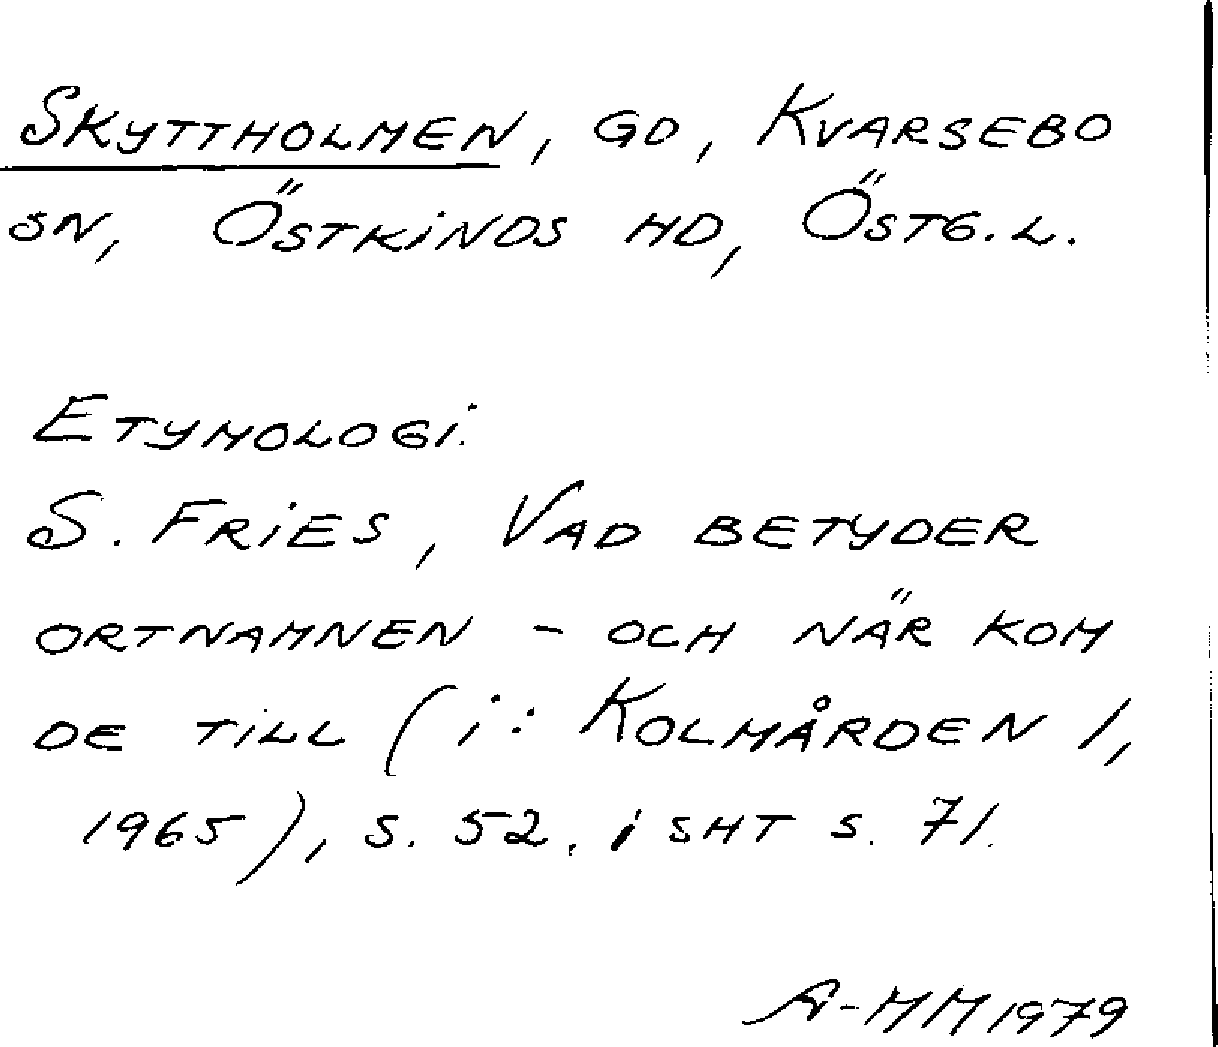 SKYTTHOLMEN, GD, KVARSEBO
SN, ÖSTKINDS HD, ÖSTG. L.
ETYMOLOGI.
S. FRIES, VAD BETYDER
ORTNAMNEN - OCH NÄR KOM
DE TILL (i: KOLMÅRDEN 1,
1965), S. 52. i SHT S. 71.
A-MM 1979